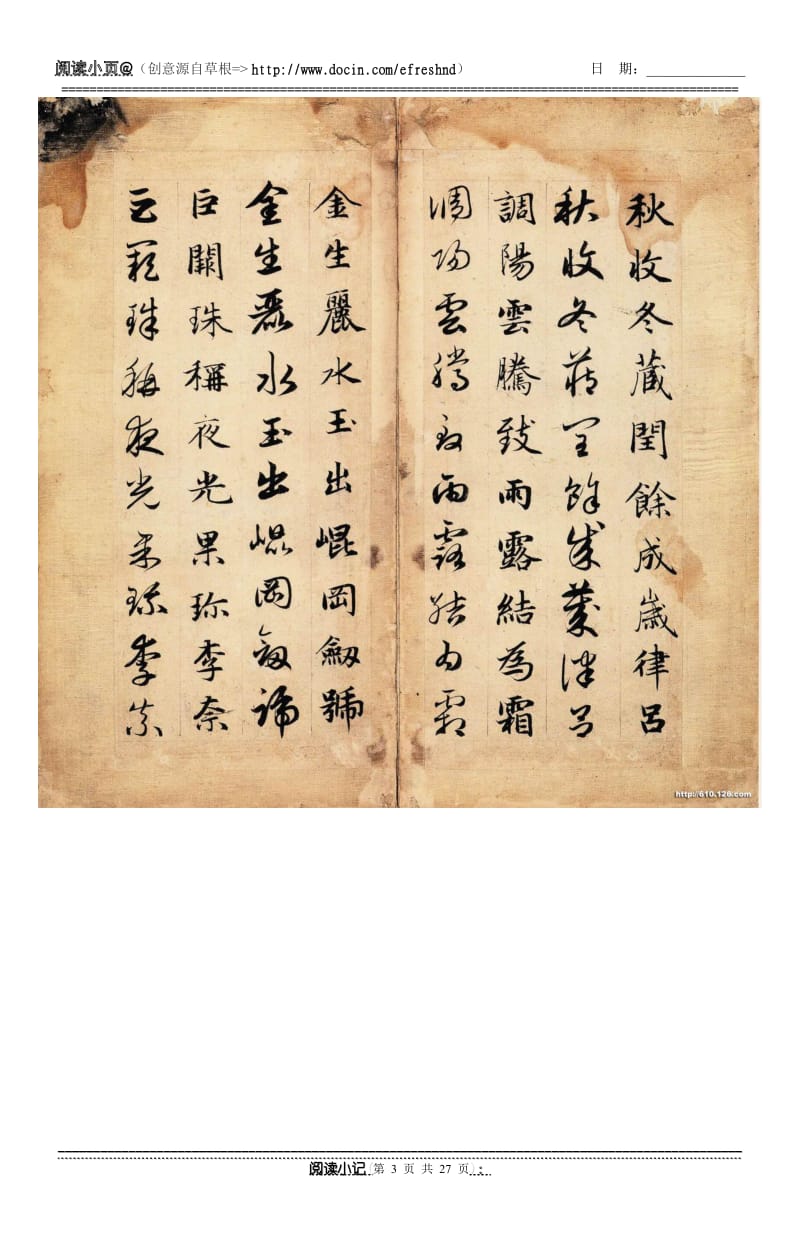 阅读小页@（创意源自草根=> http://www.docin.com/efreshnd） 日 期：______________
秋收冬蔵閏餘成嵗律呂
秋收冬蔵閏餘成嵗律呂
調陽雲騰致雨露結為霜
調陽雲騰致雨露結為霜
金生麗水玉出崐岡劔號
金生麗水玉出崐岡劔號
巨闕珠稱夜光果珎李奈
巨闕珠稱夜光果珎李柰
http://610.126.com
阅读小记（第 3 页 共 27 页）：